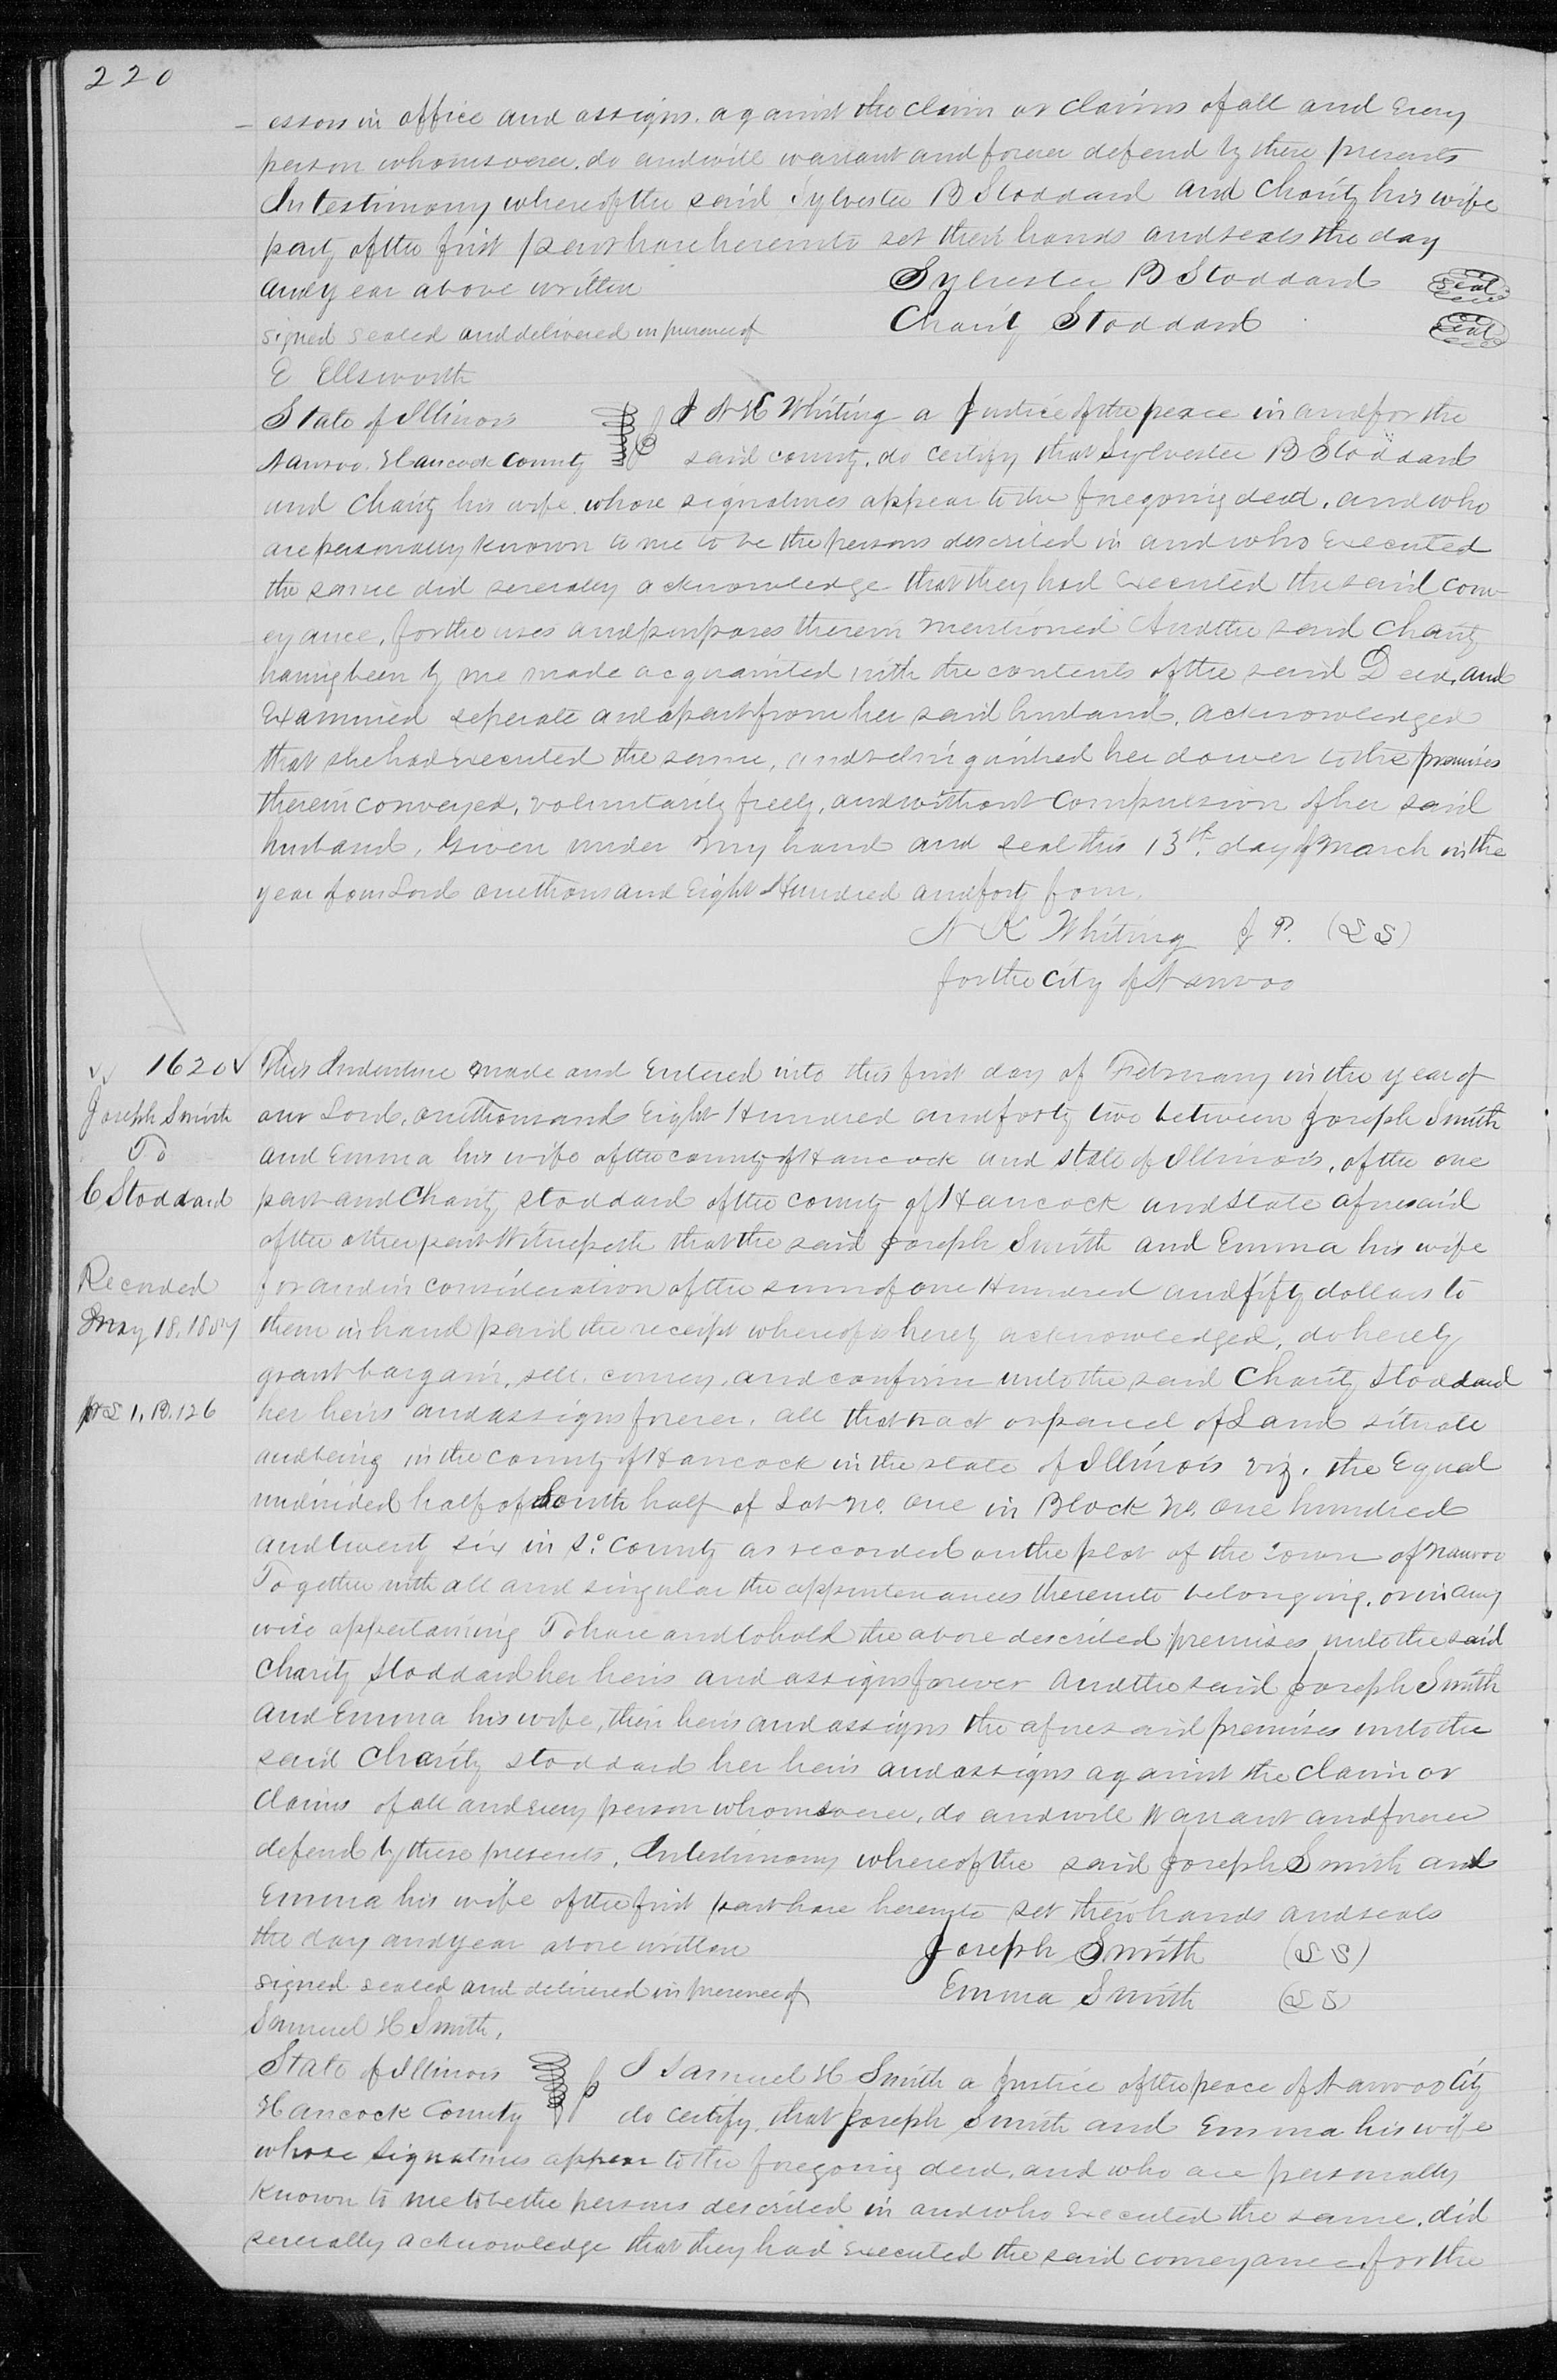 220
essors in office and assigns. against the claim or claims of all and Every
person whomsoever. do and will warrant and forever defend by these presents
In testimony whereof the said Sylvester B Stoddard and Charity his wife
party of the first part have hereunto set their hands and seals the day
and year above written Sylvester B Stoddard seal
signed sealed and delivered in presence of Charity Stoddard seal
E Ellsworth
State of Illinois I N K Whiting a Justice of the peace in and for the
Nauvoo, Hancock County said county, do certify that Sylvester B Stoddard
and Charity his wife whose signatures appear to the foregoing deed, and who
are personally known to me to be the persons described in and who Executed
the same did severally acknowledge that they had Executed the said conv-
eyance, for the uses and purposes therein mentioned And the said Charity
having been by me made acquainted with the contents of the said Deed, and
Examined seperate and apart from her said husband, acknowledged
that she had Executed the same, and relinquished her dower to the premises
therein conveyed, voluntarily freely, and without compulsion of her said
husband, Given under my hand and seal this 13th. day of March in the
year of our Lord one thousand Eight Hundred and forty four,
N K Whiting J P. (L S)
for the City of Nauvoo
1620
Joseph Smith
To
C Stoddard
Recorded
May 18. 1857
pt L 1, B. 126
This Indenture made and Entered into this first day of February in the year of
our Lord, one thousand Eight Hundred and forty two between Joseph Smith
and Emma his wife of the county of Hancock and state of Illinois, of the one
part and Charity Stoddard of the county of Hancock and state aforesaid
of the other part Witnesseth that the said Joseph Smith and Emma his wife
for and in consideration of the sum of one Hundred and fifty dollars to
them in hand paid the receipt whereof is hereby acknowledged, do hereby
grant bargain, sell. convey, and confirm unto the said Charity Stoddard
her heirs and assigns forever. all that tract or parcel of Land situate
and being in the county of Hancock in the state of Illinois viz. the Equal
undivided half of South half of Lot no. one in Block no. one hundred
and twenty six in sd. County as recorded on the plot of the Town of Nauvoo
Together with all and singular the appurtenances thereunto belonging. or in any
wise appertaining To have and to hold the above described premises unto the said
Charity Stoddard her heirs and assigns forever And the said Joseph Smith
and Emma his wife, their heirs and assigns the aforesaid premises unto the
said Charity Stoddard her heirs and assigns against the claim or
claims of all and Every person whomsoever, do and will Warrant and forever
defend by these presents. In testimony whereof the said Joseph Smith and
Emma his wife of the first part have hereunto set their hands and seals
the day and year above written Joseph Smith (L S)
signed sealed and delivered in presence of Emma Smith (L S)
Samuel H Smith,
State of Illinois I Samuel H Smith a Justice of the peace of Nauvoo City
Hancock County do certify that Joseph Smith and Emma his wife
whose signatures appear to the foregoing deed, and who are personally
known to me to be the persons described in and who Executed the same, did
severally acknowledge that they had Executed the said conveyance for the